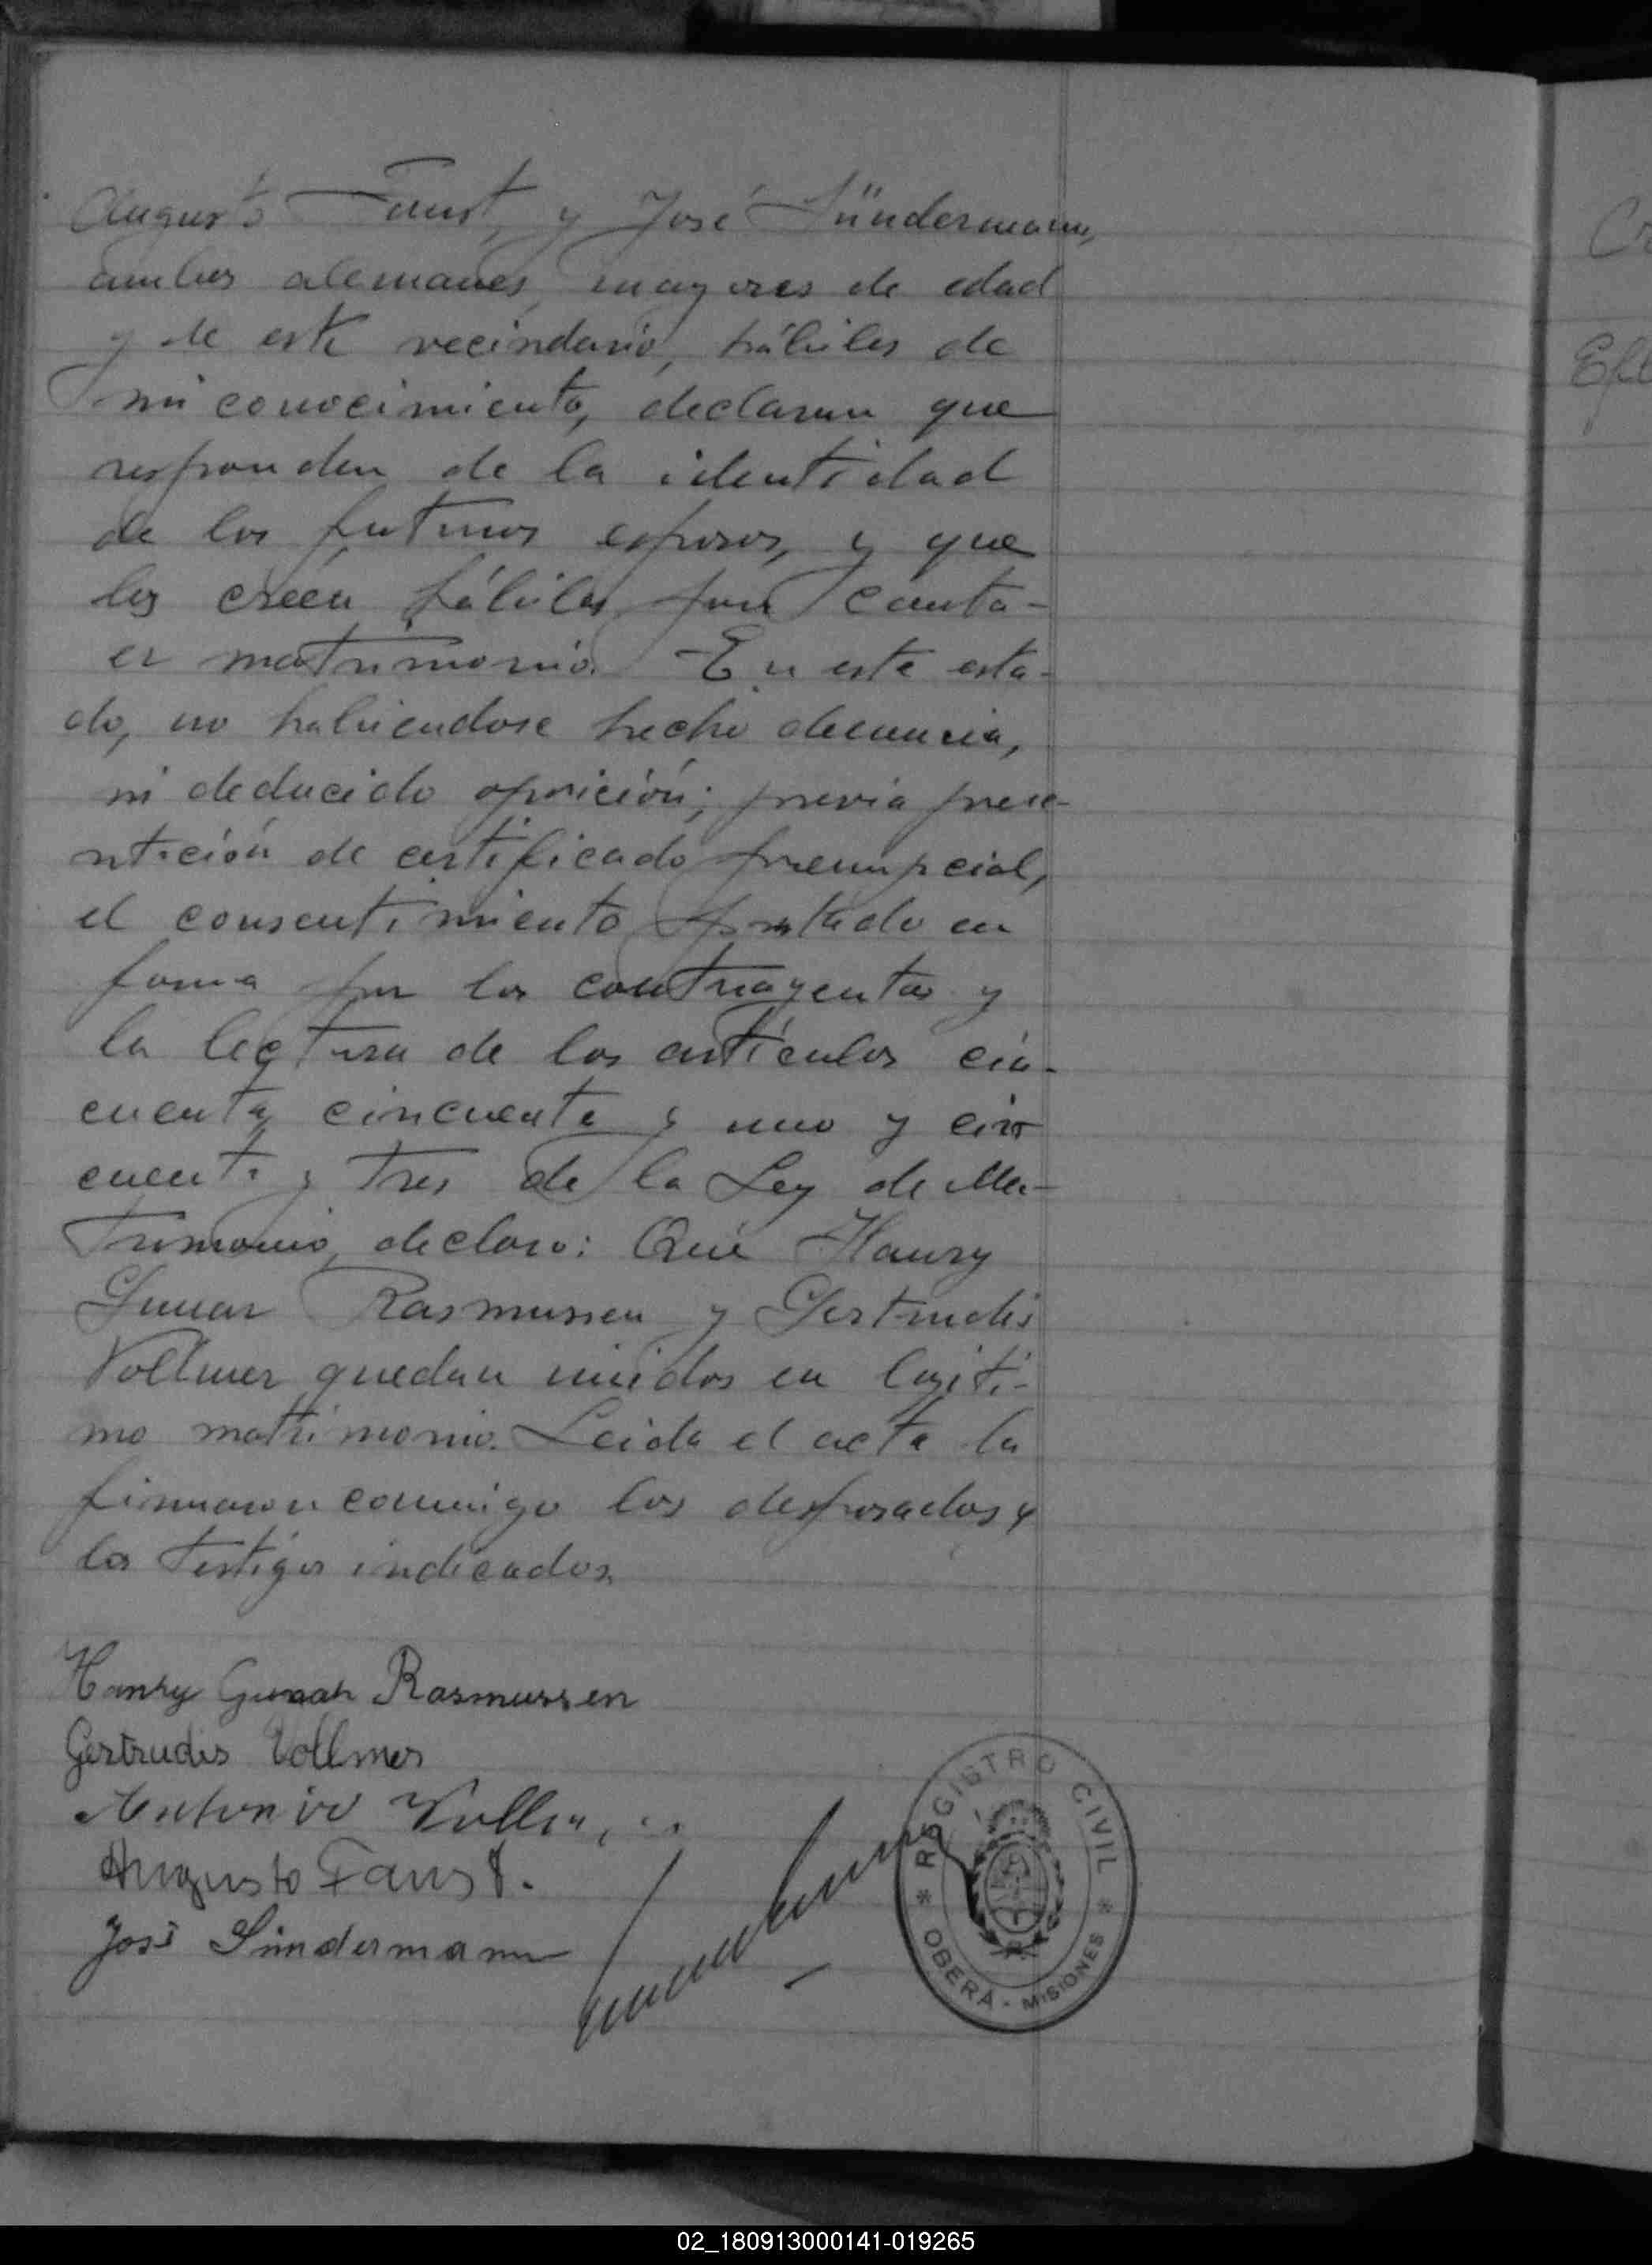 Augusto Faust, y José Sündermann,
ambos alemanes, mayores de edad
y de este vecindario, hábiles de
mi conocimiento, declaran que
responden de la identidad
de los futuros esposos, y que
los créen hábiles para contra-
er matrimonio. En este esta-
do, no habiendose hecho denuncia,
ni deducido oposición; previa prese-
ntación de certificado prenupcial,
el consentimiento prestado en
forma por los contrayentes y
la lectura de los artículos cin-
cuenta, cincuenta y uno y cin
cuenta y tres de la Ley de Ma-
trimonio, declaro: Que Hanry
Gunar Rasmussen y Gertrudis
Vollmer quedan unidos en legiti-
mo matrimonio. Leida el acta la
firmaron conmigo los desposados y
los testigos indicados.
Hanry Gunar Rasmussen
Gertrudis Vollmer
Antonio
Augusto Faust.
José Sündermann
REGISTRO CIVIL
* OBERÁ - MISIONES *
Cr
Efe
02_180913000141-019265